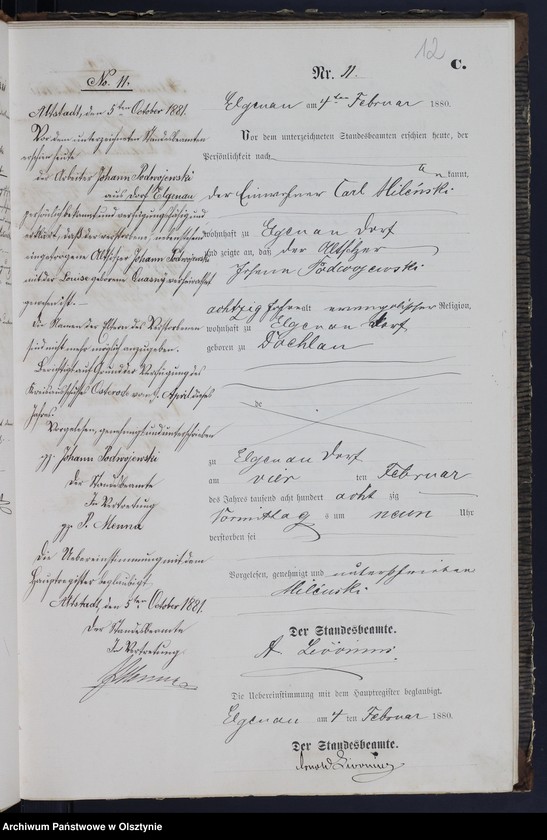 12
C.
No. 11.
Altstadt, den 5ten October 1881.
Vor dem unterzeichneten Standesbeamten
erschien heute
der Arbeiter Johann Podwojewski
aus Dorf Elgenau
persönlich bekannt und verfügungsfähig und
erklärte, daß der verstorbene, nebenstehend
eingetragene Altsitzer Johann Podwojewski
mit der Louise geborenen Quassny verheirathet
gewesen ist. —
Die Namen der Eltern des Verstorbenen
sind nicht mehr möglich anzugeben.
Berichtigt auf Grund der Verfügung des
Kreisausschusses Osterode vom April dieses
Jahres.
Vorgelesen, genehmigt und unterschrieben
gz. Johann Podwojewski
Der Standesbeamte
In Vertretung
gz. P. Menna
Die Uebereinstimmung mit dem
Hauptregister beglaubigt.
Altstadt, den 5ten October 1881.
Der Standesbeamte
In Vertretung
PMenna
Nr. 11.
Elgenau am 4ten Februar 1880.
Vor dem unterzeichneten Standesbeamten erschien heute, der
Persönlichkeit nach
kannt,
der Einwohner Carl Milenski
wohnhaft zu Elgenau Dorf
und zeigte an, daß der Altsitzer
Johann Podwojewski
achtzig Jahre alt evangelischer Religion,
wohnhaft zu Elgenau Dorf
geboren zu Döhlau
zu Elgenau Dorf
am vier ten Februar
des Jahres tausend acht hundert acht zig
Vormittag s um neun Uhr
verstorben sei
Vorgelesen, genehmigt und unterschrieben
Milenski
Der Standesbeamte.
A Livonius.
Die Uebereinstimmung mit dem Hauptregister beglaubigt.
Elgenau am 4 ten Februar 1880.
Der Standesbeamte.
Arnold Livonius
Archiwum Państwowe w Olsztynie